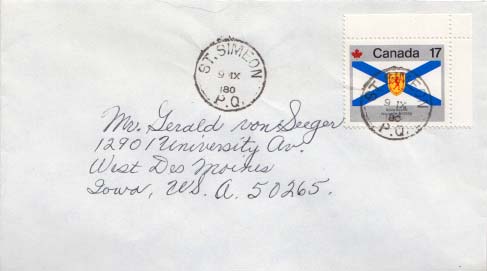 Canada 17
ST. SIMEON
9 IX
180
P.Q.
ST. SIMEON
9 IX
80
P.Q.
Mr. Gerald von Seeger
12901 University Av.
West Des Moines
Iowa, U.S.A. 50265.